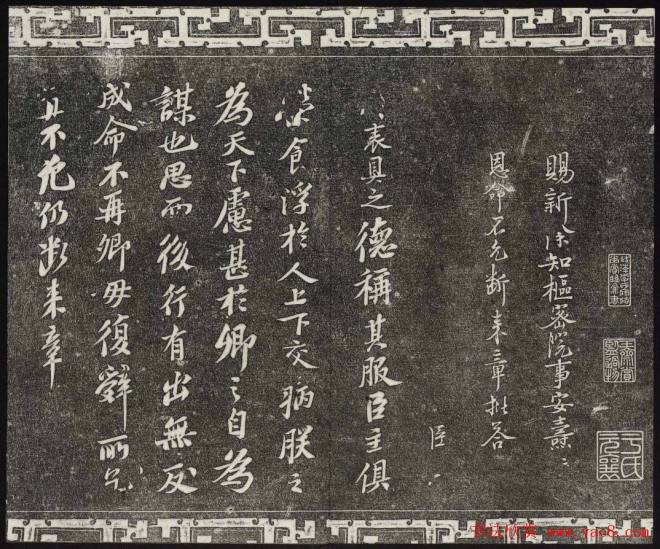 賜新除知樞密院事安燾
恩命不允斷來章批答
臣
表具之德稱其服臣主俱
榮食浮於人上下交病朕之
為天下慮甚於卿之自為
謀也思而後行有出無反
成命不再卿毋復辭所乞
宜不允仍斷來章
书法欣赏 www.yac8.com